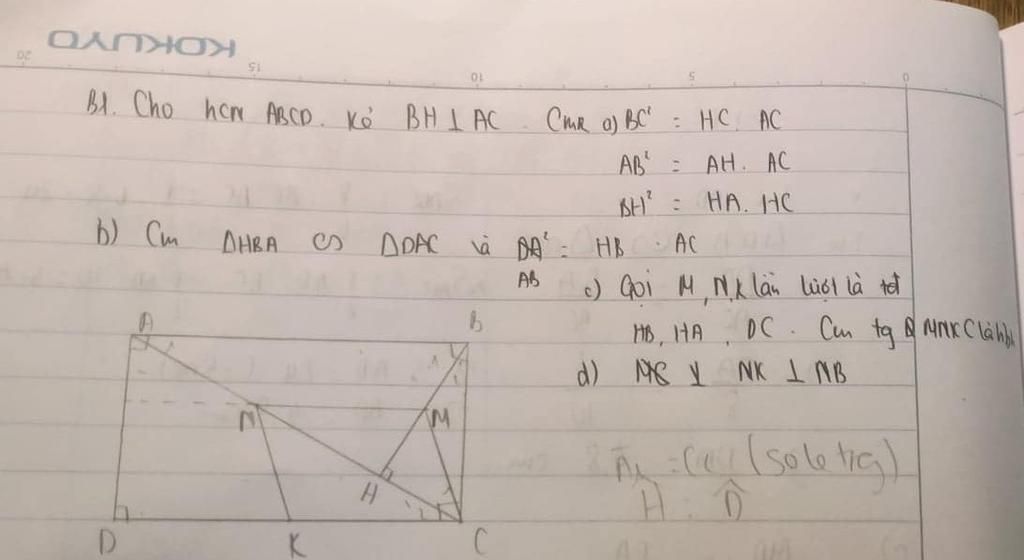 KOKUYO
20 15 10 5 0
B1. Cho hcn ABCD. Kẻ BH ⊥ AC. CmR a) BC² = HC. AC
AB² = AH. AC
BH² = HA. HC
b) Cm ΔHBA ∽ ΔDAC và = HB . AC
AB
c) Gọi M, N, K lần lượt là tđ
HB, HA, DC. Cm tg MNKC là hbh
d) NK ⊥ NB
A B
N M
H
D K C
(sole trg)
H D